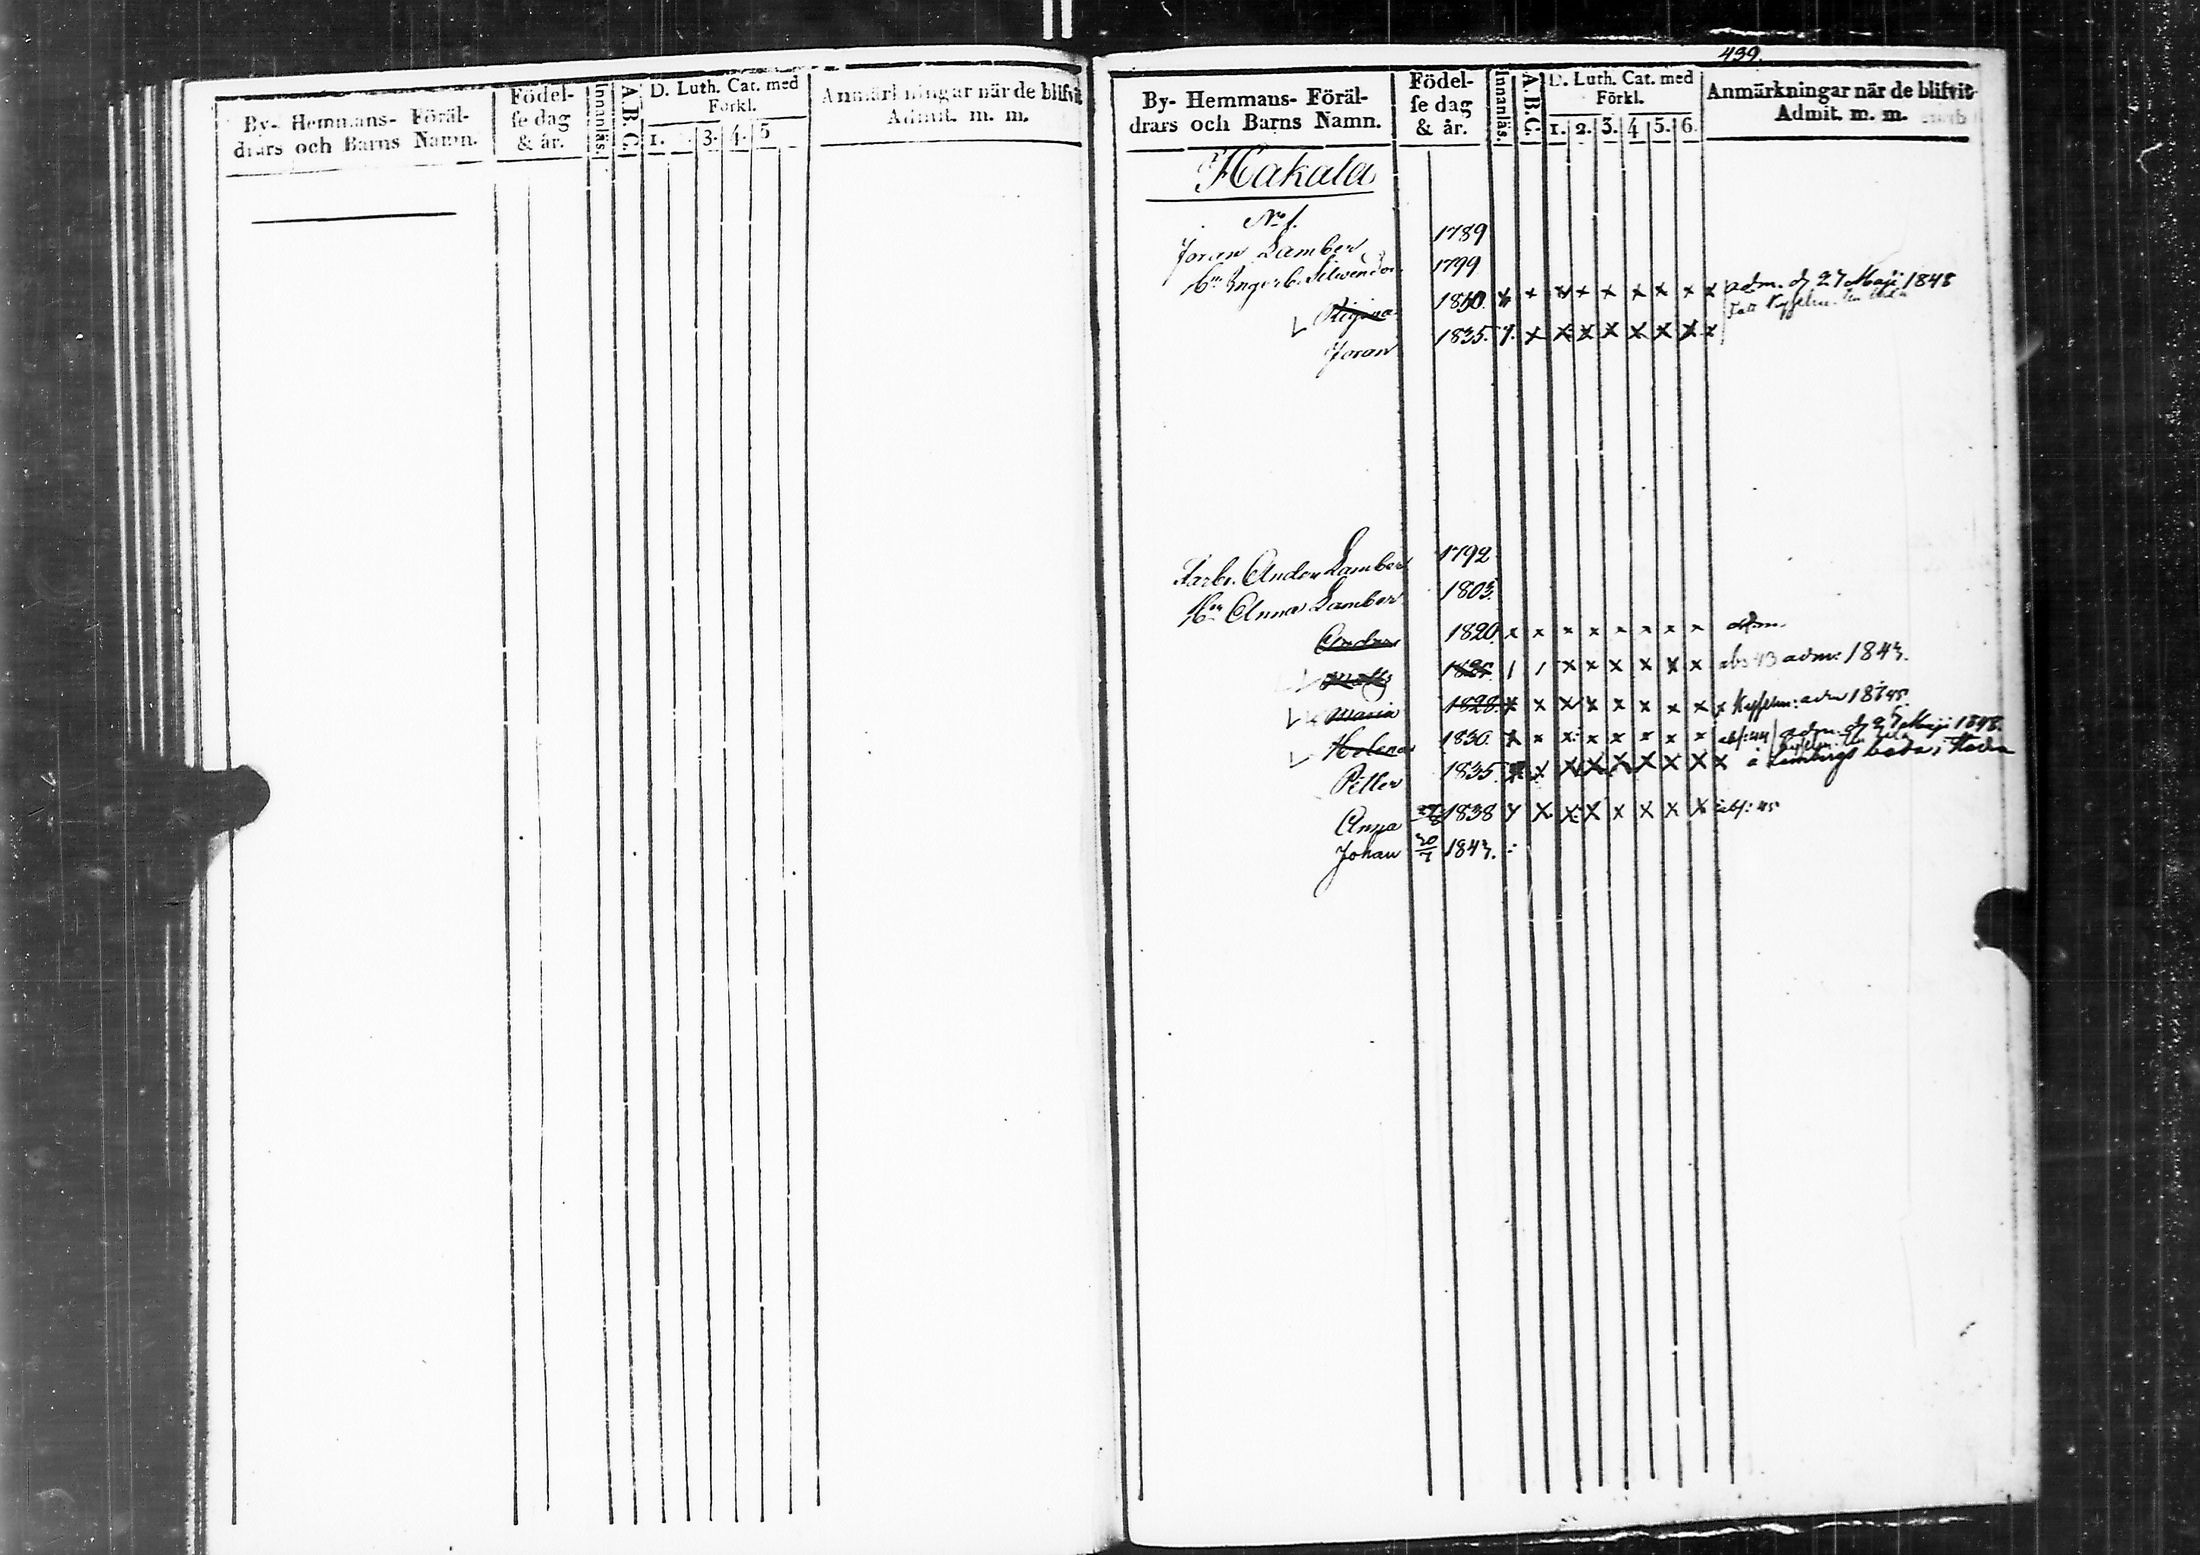 By- Hemmans- Föräl-
drars och Barns Namn.
Födel-
se dag
& år.
Innanläs.
A.B.C.
D. Luth. Cat. med
Förkl.
1. 3. 4. 5
Anmärkningar när de blifvit
Admit. m. m.
439.
By- Hemmans- Föräl-
drars och Barns Namn.
Födel-
se dag
& år.
Innanläs.
A.B.C.
D. Luth. Cat. med
Förkl.
1. 2. 3. 4 5. 6.
Anmärkningar när de blifvit
Admit. m. m.
Hakala
No 1.
Joran Lamber 1789
1799
Regina x x x x x x x x x adm. d 27 Maji 1848
Joran 1835. x x x x x x x x
Anders Lamber 1792
Hu Anna Lamber 1803
Anders 1820 x x x x x x x x adm.
Matts / / x x x x x x abs 43 adm: 1843.
Maria 1828. x x x x x x x x x
Helena 1830. x x x x x x x x abs: 44 adm. d 27 Maji 1848
Petter 1835 x x x x x x x x
Anna 1838 x x x x x x x x abs: 45
Johan 30/7 1843.